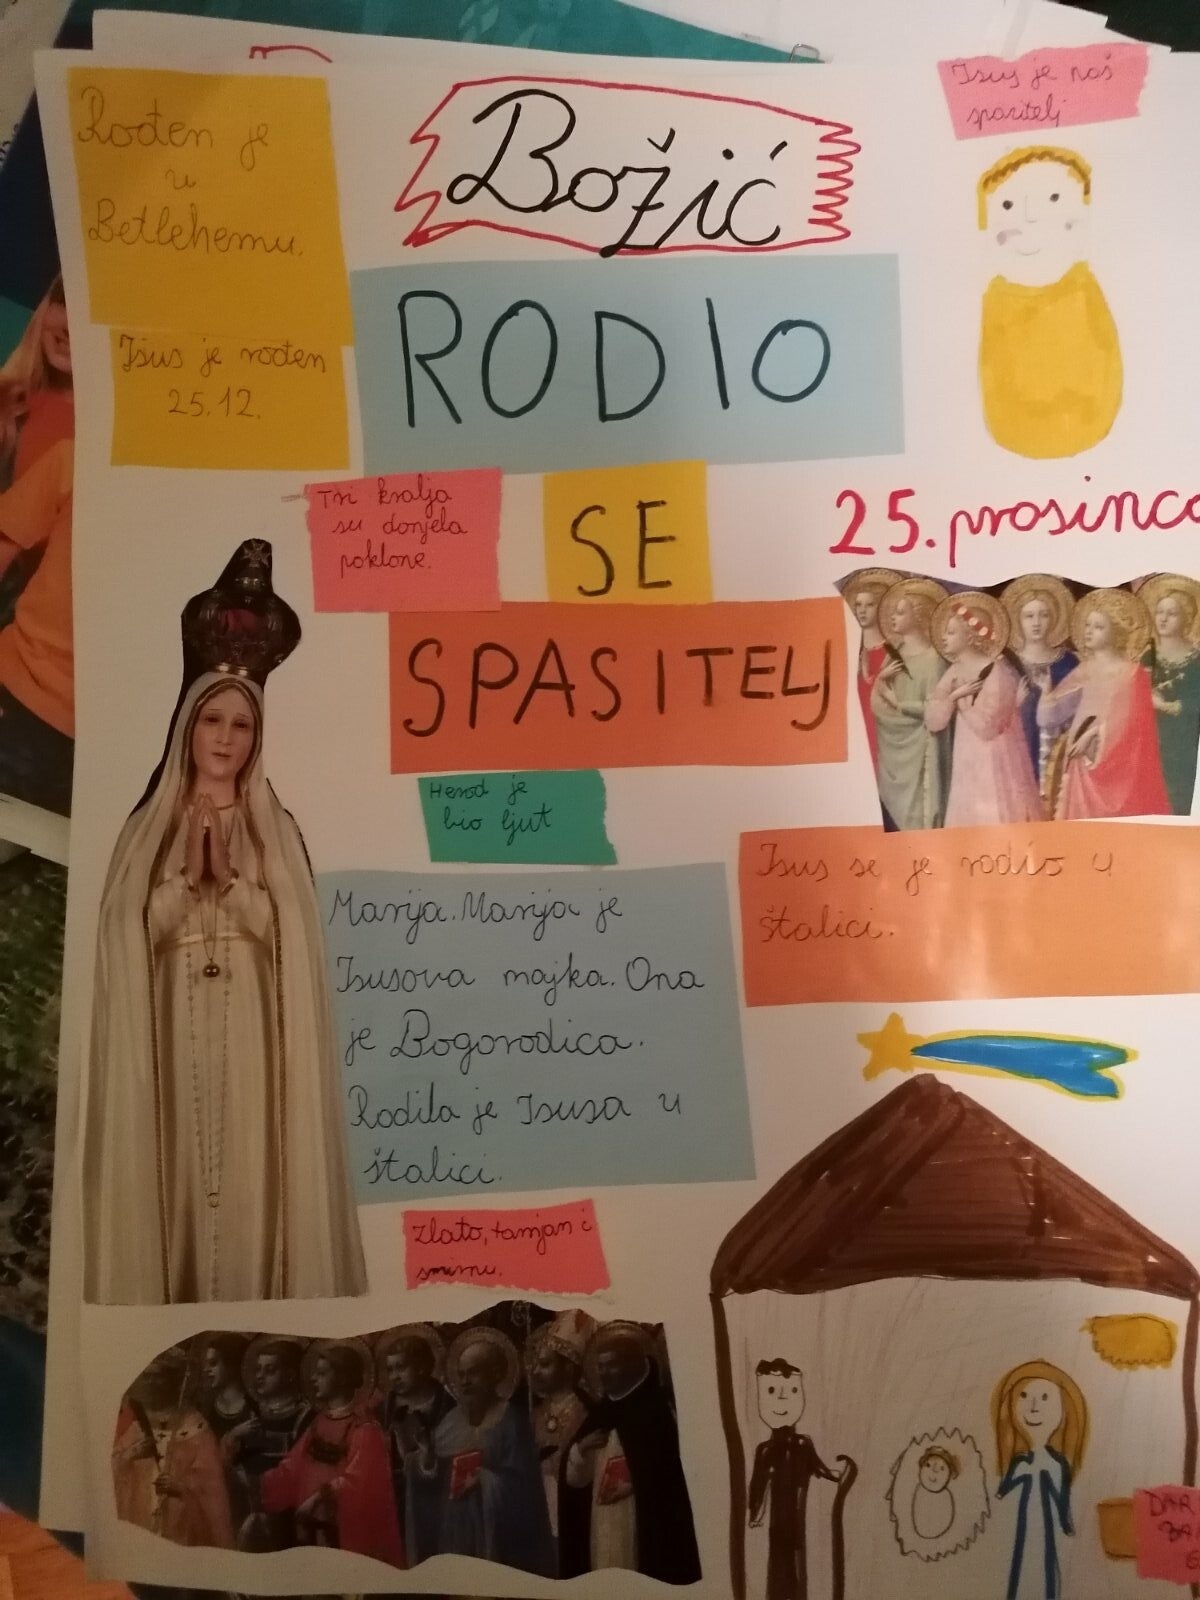 Rođen je
u
Betlehemu.
Božić
Isus je naš
spasitelj
Isus je rođen
25.12.
RODIO
Tri kralja
su donjela
poklone.
SE
25. prosinca
SPASITELJ
Herod je
bio ljut
Isus se je rodio u
štalici.
Marija. Marija je
Isusova majka. Ona
je Bogorodica.
Rodila je Isusa u
štalici.
Zlato, tamjan i
smirnu.
DAR